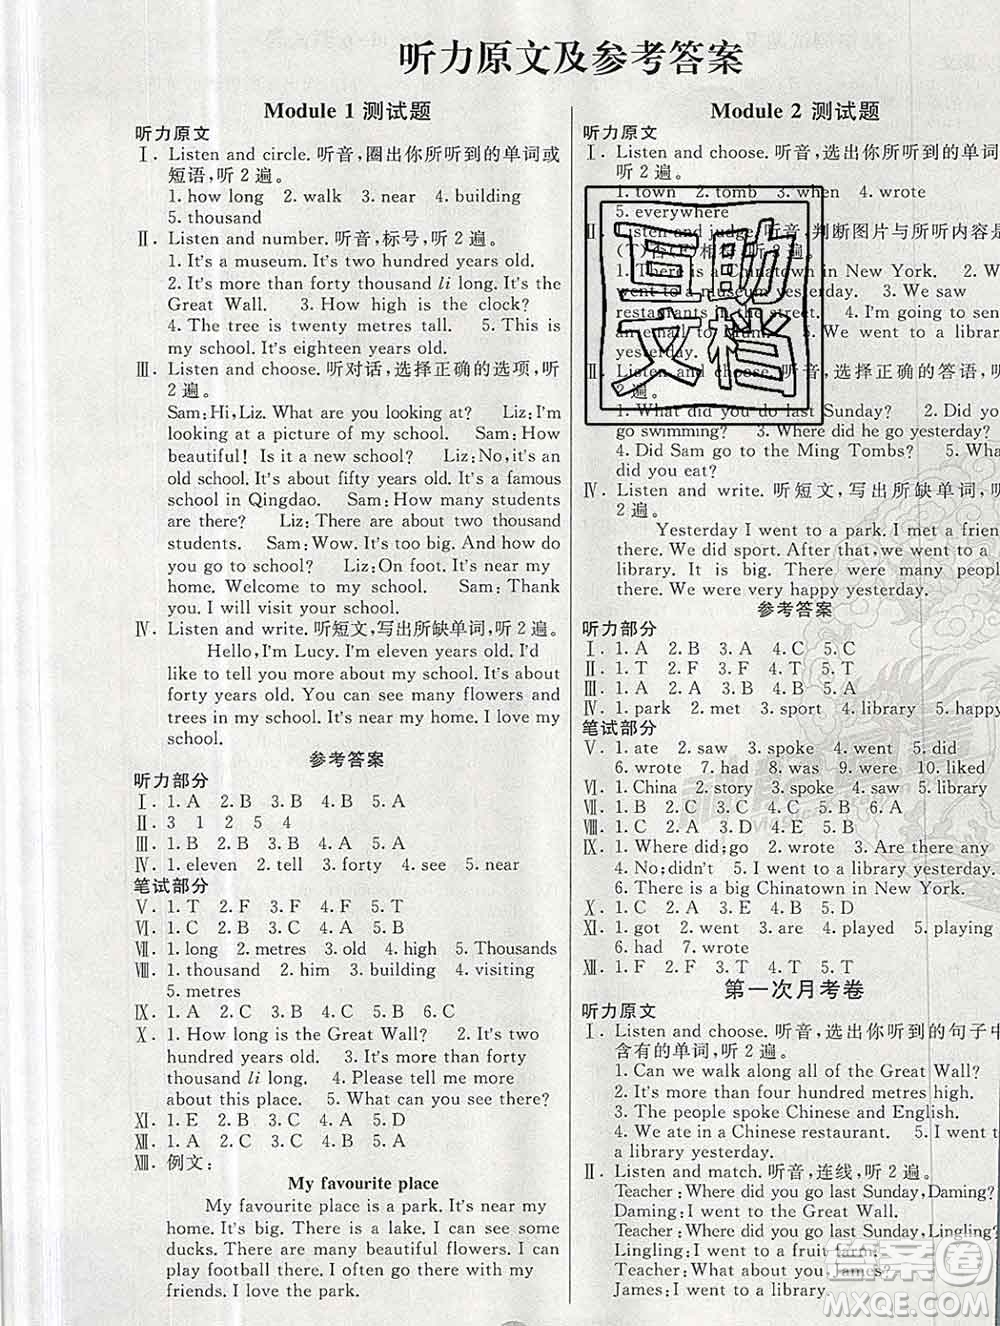 听力原文及参考答案
Module 1 测试题
听力原文
Ⅰ. Listen and circle. 听音,圈出你所听到的单词或
短语,听2遍。
1. how long 2. walk 3. near 4. building
5. thousand
Ⅱ. Listen and number. 听音,标号,听2遍。
1. It's a museum. It's two hundred years old.
2. It's more than forty thousand li long. It's the
Great Wall. 3. How high is the clock?
4. The tree is twenty metres tall. 5. This is
my school. It's eighteen years old.
Ⅲ. Listen and choose. 听对话,选择正确的选项,听
2遍。
Sam: Hi, Liz. What are you looking at? Liz: I'm
looking at a picture of my school. Sam: How
beautiful! Is it a new school? Liz: No, it isn't.
It's about fifty years old. It's a famous
school in Qingdao. Sam: How many students
are there? Liz: There are about two thousand
students. Sam: Wow. It's too big. And how do
you go to school? Liz: On foot. It's near my
home. Welcome to my school. Sam: Thank
you. I will visit your school.
Ⅳ. Listen and write. 听短文,写出所缺单词,听2遍。
Hello, I'm Lucy. I'm eleven years old. I'd
like to tell you more about my school. It's about
forty years old. You can see many flowers and
trees in my school. It's near my home. I love my
school.
参考答案
听力部分
Ⅰ. 1. A 2. B 3. B 4. B 5. A
Ⅱ. 3 1 2 5 4
Ⅲ. 1. B 2. B 3. B 4. A 5. A
Ⅳ. 1. eleven 2. tell 3. forty 4. see 5. near
笔试部分
Ⅴ. 1. T 2. F 3. F 4. F 5. T
Ⅵ. 1. C 2. C 3. B 4. A 5. B
Ⅶ. 1. long 2. metres 3. old 4. high 5. Thousands
Ⅷ. 1. thousand 2. him 3. building 4. visiting
5. metres
Ⅸ. 1. A 2. C 3. B 4. A 5. B 6. C
Ⅹ. 1. How long is the Great Wall? 2. It's two
hundred years old. 3. It's more than forty
thousand li long. 4. Please tell me more
about this place. 5. What can you see there?
Ⅺ. 1. E 2. B 3. C 4. A 5. D
Ⅻ. 1. A 2. C 3. C 4. A 5. C
XIII. 例文:
My favourite place
My favourite place is a park. It's near my
home. It's big. There is a lake. I can see some
ducks. There are many beautiful flowers. I can
play football there. I often go there with my
friends. I love the park.
Module 2 测试题
听力原文
Ⅰ. Listen and choose. 听音,选出你所听到的单词
听2遍。
1. town 2. tomb 3. when 4. wrote
5. everywhere
Ⅱ. Listen and judge. 听音,判断图片与所听内容是
(T)否(F)相符,听2遍。
1. There is a Chinatown in New York. 2. W
went to a museum yesterday. 3. We saw
restaurants in the street. 4. I'm going to sen
an email to Mum. 5. We went to a library
yesterday.
Ⅲ. Listen and choose. 听音,选择正确的答语,听
2遍。
1. What did you do last Sunday? 2. Did yo
go swimming? 3. Where did he go yesterday?
4. Did Sam go to the Ming Tombs? 5. What
did you eat?
Ⅳ. Listen and write. 听短文,写出所缺单词,听
2遍。
Yesterday I went to a park. I met a frien
there. We did sport. After that, we went to a
library. It is big. There were many peopl
there. We were very happy yesterday.
参考答案
听力部分
Ⅰ. 1. A 2. B 3. A 4. C 5. C
Ⅱ. 1. T 2. F 3. F 4. T 5. T
Ⅲ. 1. A 2. A 3. B 4. B 5. A
Ⅳ. 1. park 2. met 3. sport 4. library 5. happy
笔试部分
Ⅴ. 1. ate 2. saw 3. spoke 4. went 5. did
6. wrote 7. had 8. was 9. were 10. liked
Ⅵ. 1. China 2. story 3. spoke 4. saw 5. library
Ⅶ. 1. B 2. C 3. C 4. C 5. B 6. A
Ⅷ. 1. B 2. C 3. A 3. D 4. E 5. B
Ⅸ. 1. Where did; go 2. wrote 3. Are there any
4. No; didn't 5. I went to a library yesterday.
6. There is a big Chinatown in New York.
Ⅹ. 1. C 2. A 3. E 4. B 5. D
Ⅺ. 1. got 2. went 3. are 4. played 5. playing
6. had 7. wrote
Ⅻ. 1. F 2. F 3. T 4. T 5. F
第一次月考卷
听力原文
Ⅰ. Listen and choose. 听音,选出你听到的句子中
含有的单词,听2遍。
1. Can we walk along all of the Great Wall?
2. It's more than four hundred metres high.
3. The people spoke Chinese and English.
4. We ate in a Chinese restaurant. 5. I went t
a library yesterday.
Ⅱ. Listen and match. 听音,连线,听2遍。
Teacher: Where did you go last Sunday, Daming?
Daming: I went to the Great Wall.
Teacher: Where did you go last Sunday, Lingling?
Lingling: I went to a fruit farm.
Teacher: What about you, James?
James: I went to a library.
互助
文档
答案圈
MXQE.COM